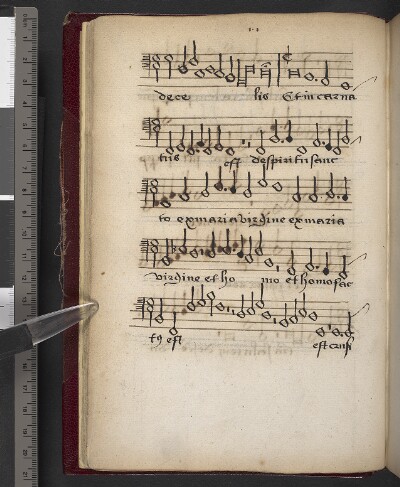 de ce lis Et in carna
tus est de spiritu sanc
to ex maria virgine ex maria
virgine et ho mo et homo fac
t9 est est cruci